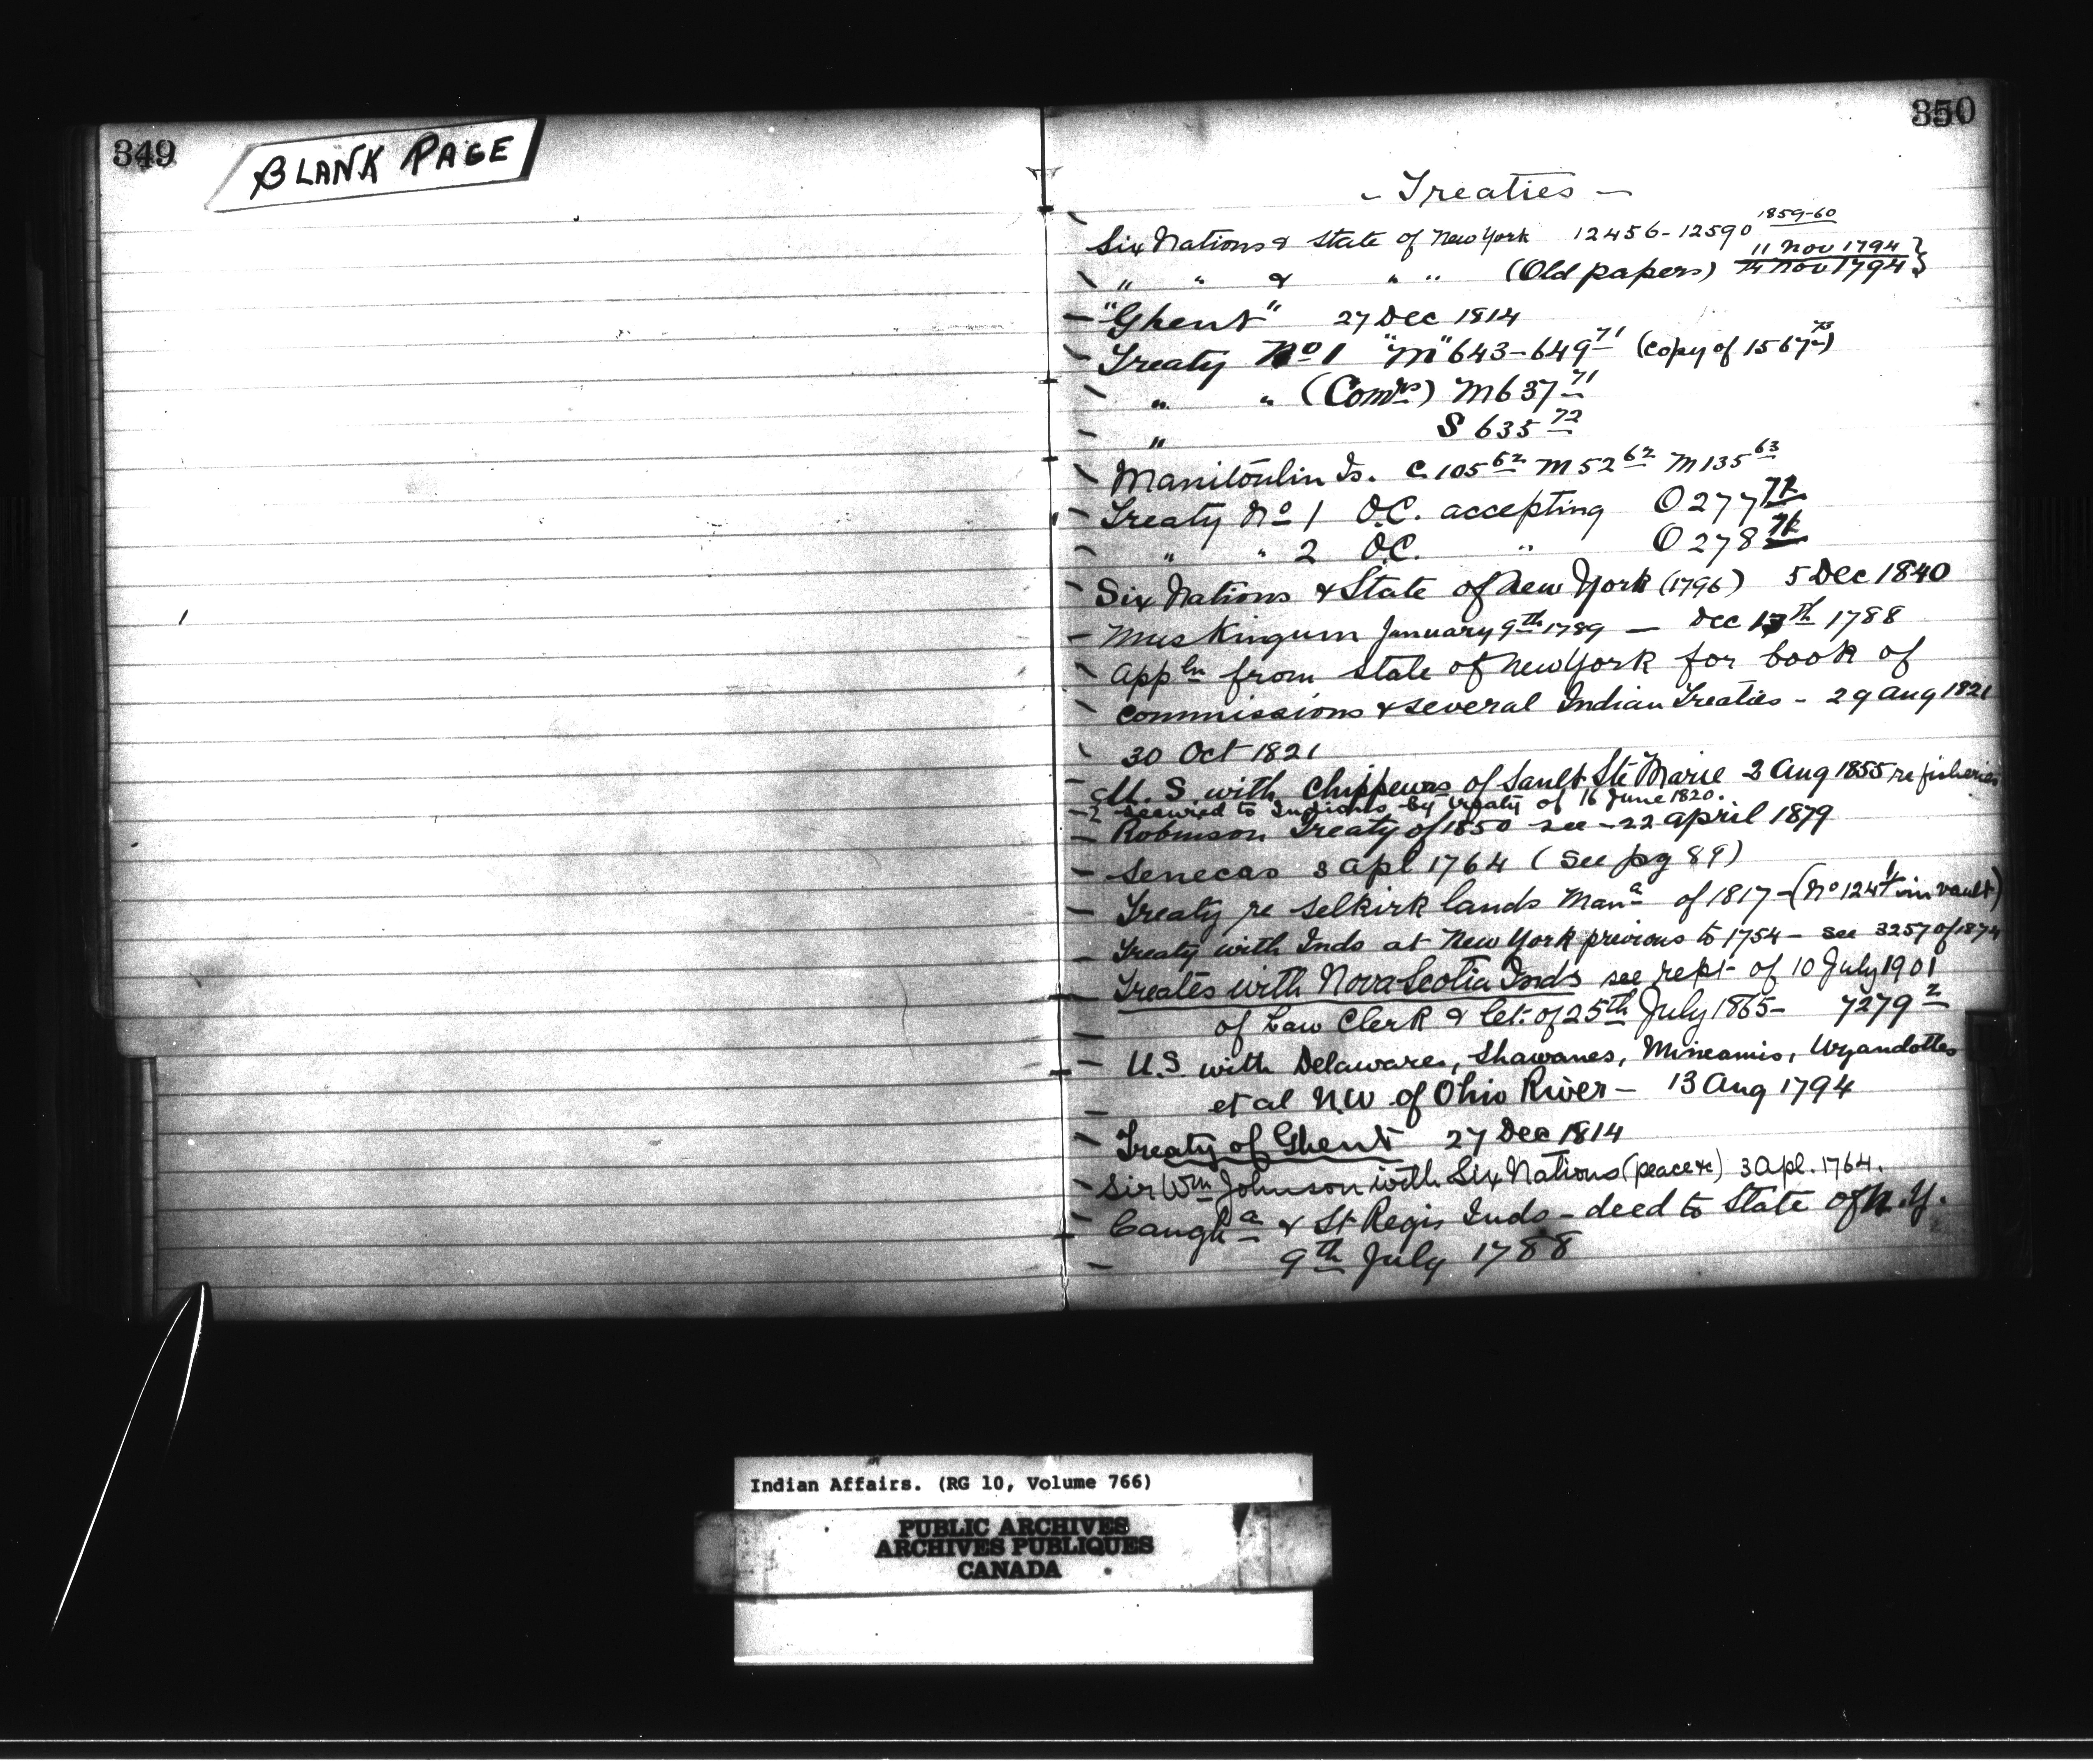 349
BLANK PAGE
350
- Treaties -
1859-60
Six Nations & State of New York 12456-12590
11 Nov 1794
" " & " " (Old papers) 14 Nov 1794 }
"Ghent" 27 Dec 1814
Treaty No 1 "M" 643-649 71 (copy of 1567 73)
" " (Comrs) M 637 71
" S 635 72
Manitoulin Is. C. 105 62 M 52 62 M 135 63
Treaty No 1 O.C. accepting O 277 71
" " 2 O.C. " O 278 71
Six Nations & State of New York (1796) 5 Dec 1840
Muskingum January 9th 1789 — Dec 13th 1788
appln from State of New York for book of
commissions & several Indian Treaties - 29 Aug 1821
30 Oct 1821
U. S with Chippewas of Sault Ste Marie 2 Aug 1855 re fisheries
secured to Indians by treaty of 16 June 1820.
Robinson Treaty of 1850 see - 22 April 1879
Senecas 3 Apl 1764 (See pg 89)
Treaty re Selkirk lands Mana of 1817 - (No 124 in vault)
Treaty with Inds at New York previous to 1754 - see 3257 of 1874
Treates with Nova Scotia Inds see rept of 10 July 1901
of Law Clerk & let. of 25th July 1865 - 7279 2
U.S. with Delawares, Shawanes, Mineamis, Wyandottes
et al N.W of Ohio River - 13 Aug 1794
Treaty of Ghent 27 Dec 1814
Sir Wm Johnson with Six Nations (peace &c) 3 Apl. 1764.
Caugha & St Regis Inds - deed to State of N.Y.
9th July 1788
Indian Affairs. (RG 10, Volume 766)
PUBLIC ARCHIVES
ARCHIVES PUBLIQUES
CANADA